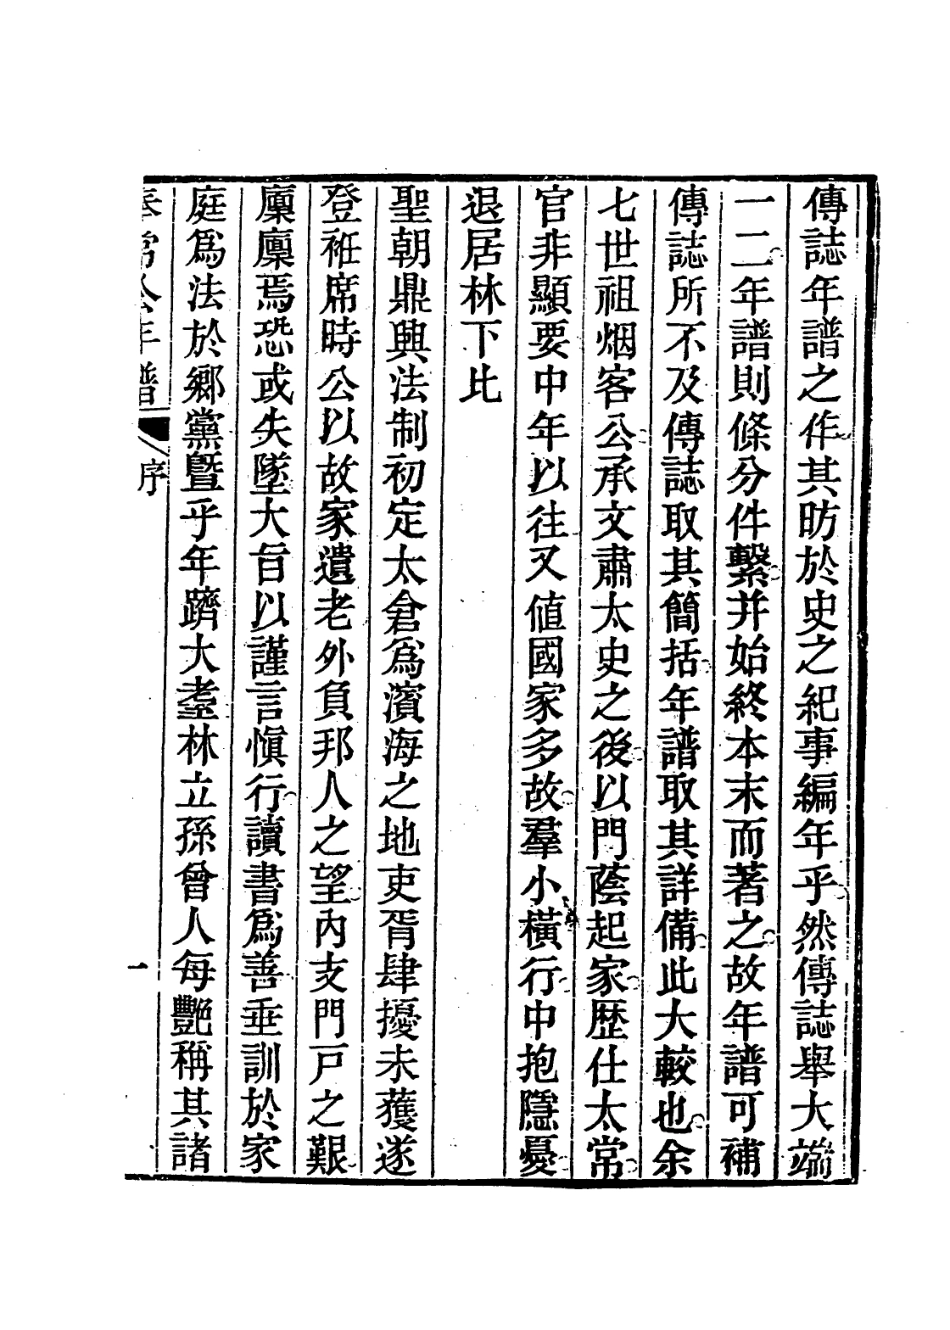 傳誌年譜之作其昉於史之紀事編年乎然傳誌舉大端
一二年譜則條分件繫并始終本末而著之故年譜可補
傳誌所不及傳誌取其簡括年譜取其詳備此大較也余
七世祖烟客公承文肅太史之後以門蔭起家歷仕太常
官非顯要中年以往又值國家多故羣小橫行中抱隱憂
退居林下比
聖朝鼎興法制初定太倉爲濱海之地吏胥肆擾未獲遂
登袵席時公以故家遺老外負邦人之望內支門戸之艱
廩廩焉恐或失墜大旨以謹言愼行讀書爲善垂訓於家
庭爲法於鄉黨曁乎年躋大耋林立孫曾人每艷稱其諸
奉常公年譜 序 一